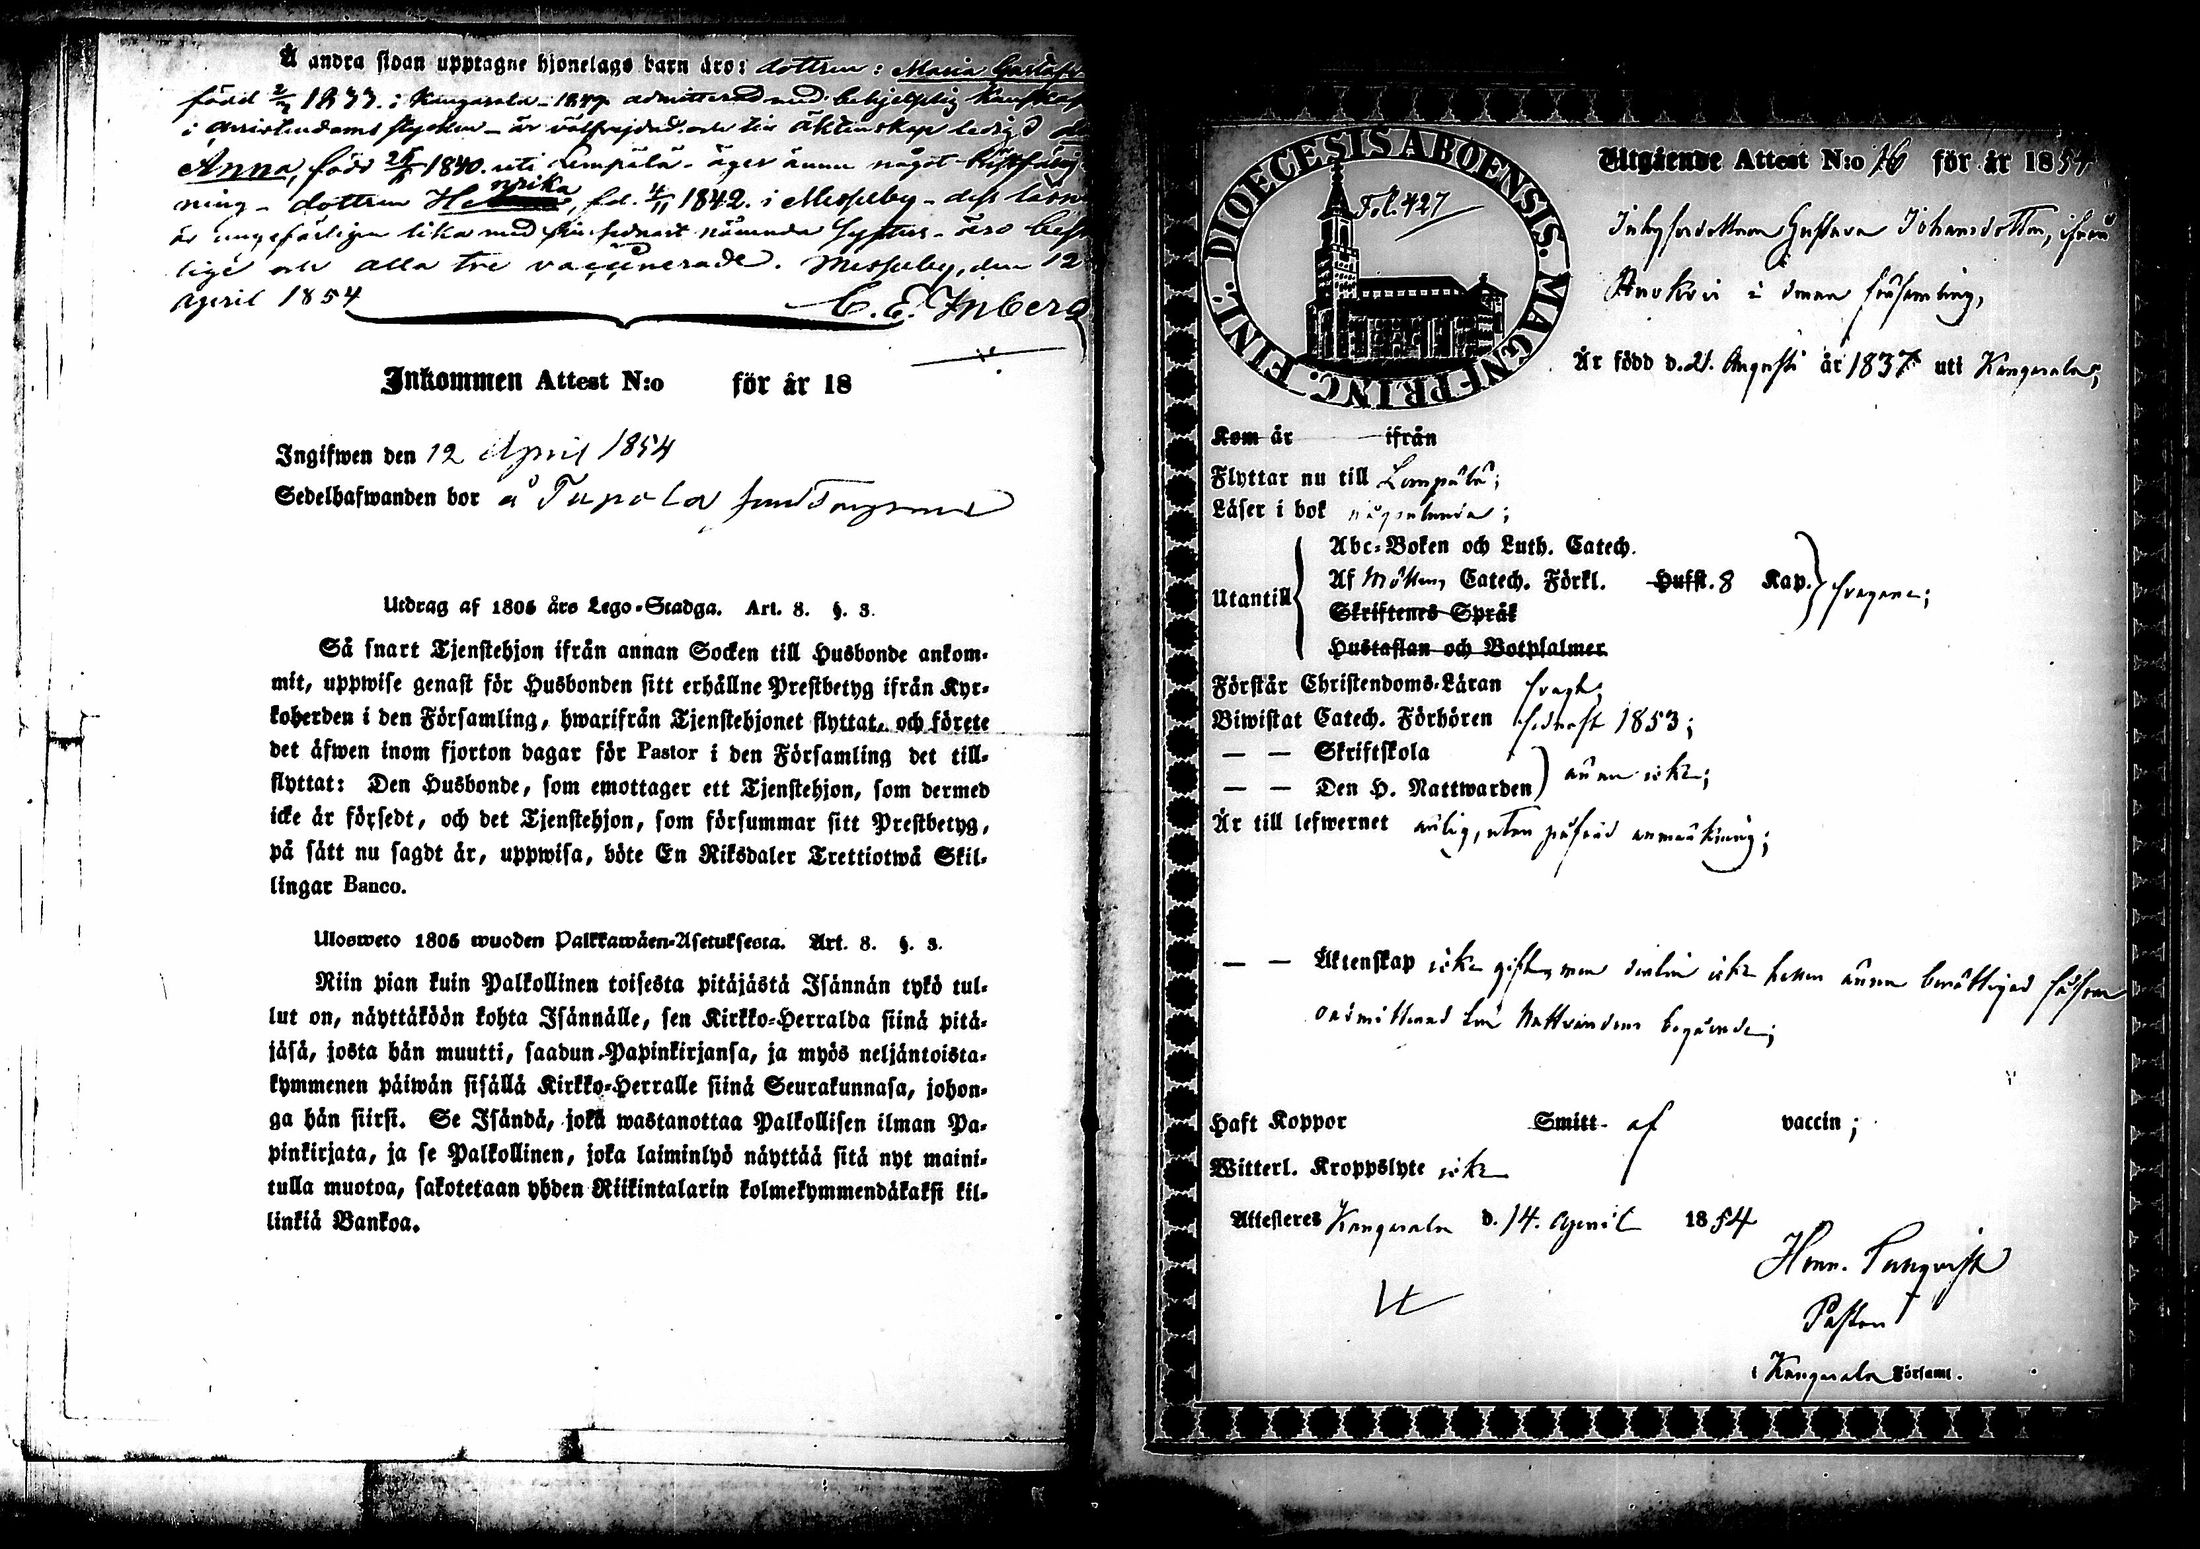 Å andra sidan upptagne hjonelags barn äro: dottren: Maria
född 2/3 1833. i Kangasala - 1847 admitterad med behjelplig
i Christendoms stycken - är välfrejdad och till äktenskap ledig
Anna, född 1840. uti Lempälä - äger ännu något
ning - dottren Henrika, fd. 4/11 1842. i Messuby - dess
är ungefärligen lika med sin sednast nämnda systers - äro
lige och alla tre vaccinerade. Messuby, den 12
April 1854 C. E. Inberg
Inkommen Attest N:o för år 18
Ingifwen den 12 April 1854
Sedelhafwanden bor å Tapola
Utdrag af 1805 års Lego-Stadga. Art. 8. §. 3.
Så snart Tjenstehjon ifrån annan Socken till Husbonde ankom-
mit, uppwise genast för Husbonden sitt erhållne Prestbetyg ifrån Kyr-
koherden i den Församling, hwarifrån Tjenstehjonet flyttat, och förete
det äfwen inom fjorton dagar för Pastor i den Församling det till-
flyttat: Den Husbonde, som emottager ett Tjenstehjon, som dermed
icke är försedt, och det Tjenstehjon, som försummar sitt Prestbetyg,
på sätt nu sagdt är, uppwisa, böte En Riksdaler Trettiotwå Skil-
lingar Banco.
Ulosweto 1805 wuoden Palkkawäen-Asetuksesta. Art. 8. §. 3.
Niin pian kuin Palkollinen toisesta pitäjästä Isännän tykö tul-
lut on, näyttäköön kohta Isännälle, sen Kirkko-Herralda siinä pitä-
jäsä, josta hän muutti, saadun Papinkirjansa, ja myös neljäntoista-
kymmenen päiwän sisällä Kirkko-Herralle siinä Seurakunnasa, johon-
ga hän siirsi. Se Isändä, joka wastanottaa Palkollisen ilman Pa-
pinkirjata, ja se Palkollinen, joka laiminlyö näyttää sitä nyt maini-
tulla muotoa, sakotetaan yhden Riikintalarin kolmekymmendäkaksi kil-
linkiä Bankoa.
DIOECESIS ABOENSIS. MAGNI PRINC. FINL.
Fol. 427
Utgående Attest N:o 16 för år 1854
Inhysesdottren Gustava Johansdotter, ifrån
i denna församling,
Är född d. 21. Augusti år 1837 uti Kangasala;
Kom år ifrån
Flyttar nu till Lempälä;
Läser i bok någorlunda;
Utantill
Abc-Boken och Luth. Catech.
Af Möllers Catech. Förkl. Hufst. 8 Kap.
Skriftenes Språk
Hustaflan och Botpsalmer
Förstår Christendoms-Läran
Biwistat Catech. Förhören sednast 1853;
— — Skriftskola
— — Den H. Nattwarden ännu icke;
Är till lefwernet ärlig, utan påförd anmärkning;
— — Äktenskap icke gift, men dertill icke heller ännu berättigad såsom
oadmitterad till Nattvardens begående;
Haft Koppor Smitt af vaccin;
Witterl. Kroppslyte icke
Attesteres Kangasala d. 14. April 1854
Pastor
i Kangasala Församl.